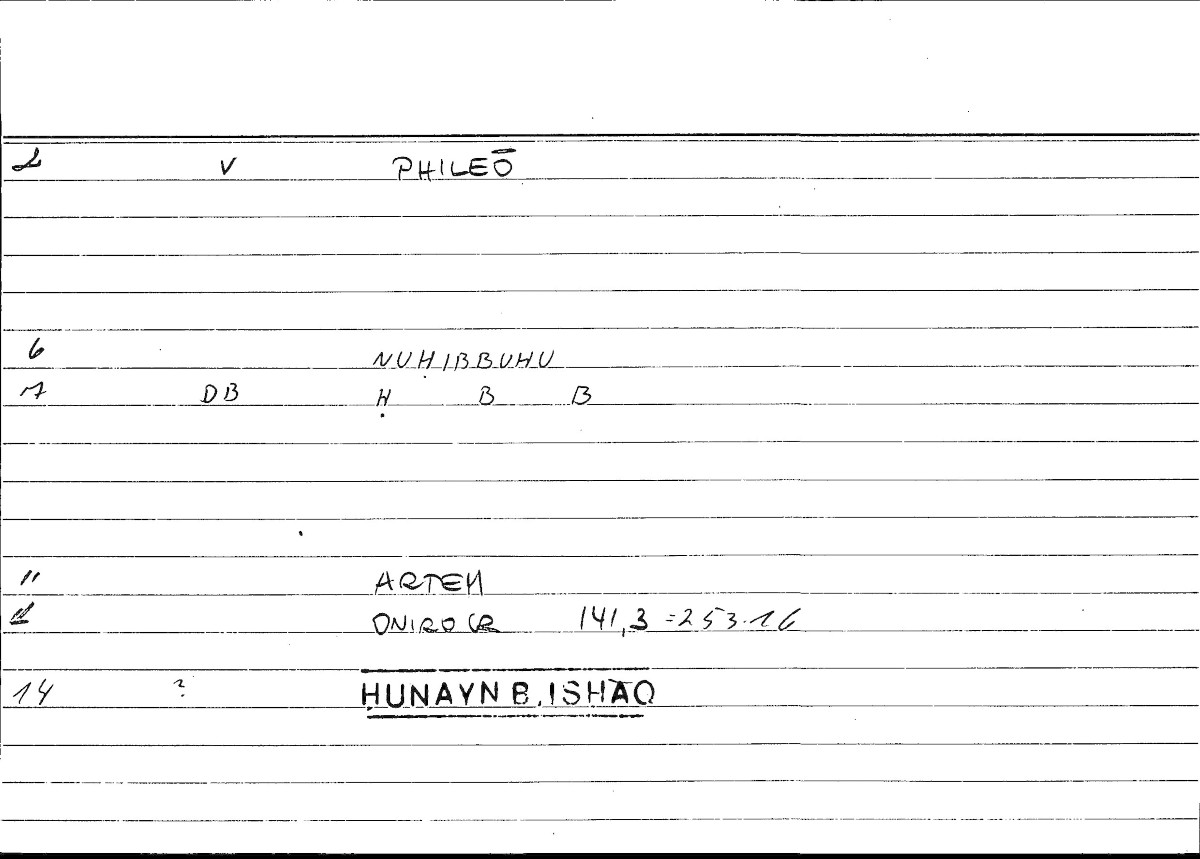 2 V PHILEŌ
6 NUḤIBBUHU
7 DB Ḥ B B
11 ARTEM
12 ONIROCR 141,3 =253.16
14 ? ḤUNAYN B. ISḤĀQ